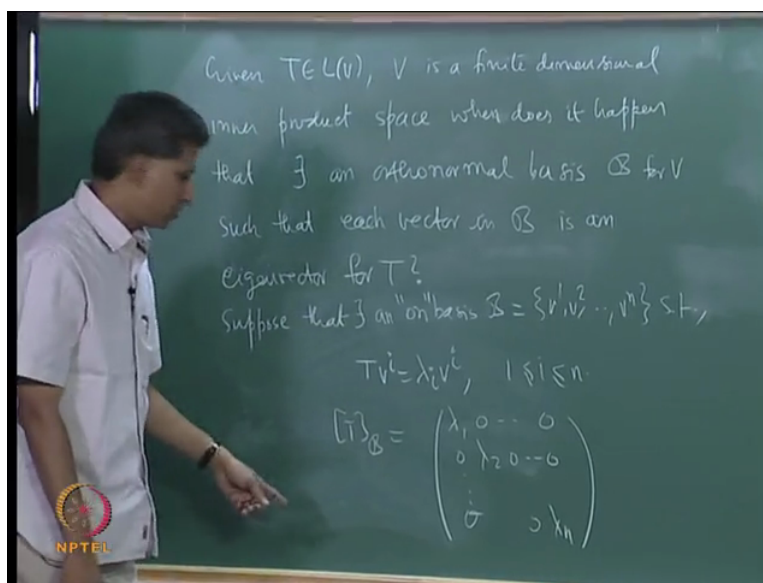 Given T∈L(V), V is a finite dimensional
inner product space when does it happen
that ∃ an orthonormal basis ℬ for V
such that each vector in ℬ is an
eigenvector for T?
Suppose that ∃ an "on" basis ℬ = {v¹, v², .., vⁿ} s.t.,
Tvⁱ = λᵢvⁱ, 1 ≤ i ≤ n.
[T]_ℬ = ( λ₁ 0 -- 0
0 λ₂ 0 --0
⋮
0 0 λₙ )
NPTEL